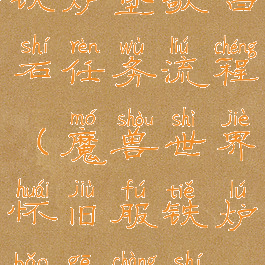 shí rèn wù liú chéng
石任务流程
mó shòu shì jiè
（魔兽世界
huái jiù fú tiě lú
怀旧服铁炉